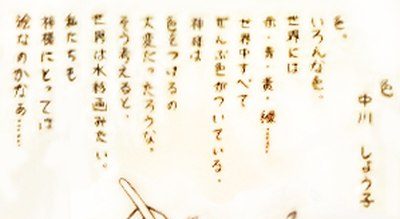 色
中川 しょう子
色。
いろんな色。
世界には
赤・青・黄・緑……
世界中すべて
ぜんぶ色がついている。
神様は
色をつけるの
大変だったろうな。
そう考えると、
世界は水彩画みたい。
私たちも
神様にとっては
絵なのかなぁ……